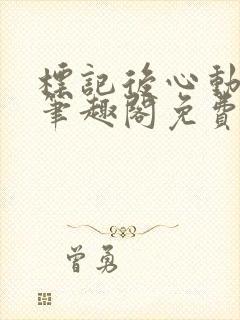 標記後心動
筆趣閣免費
曾勇